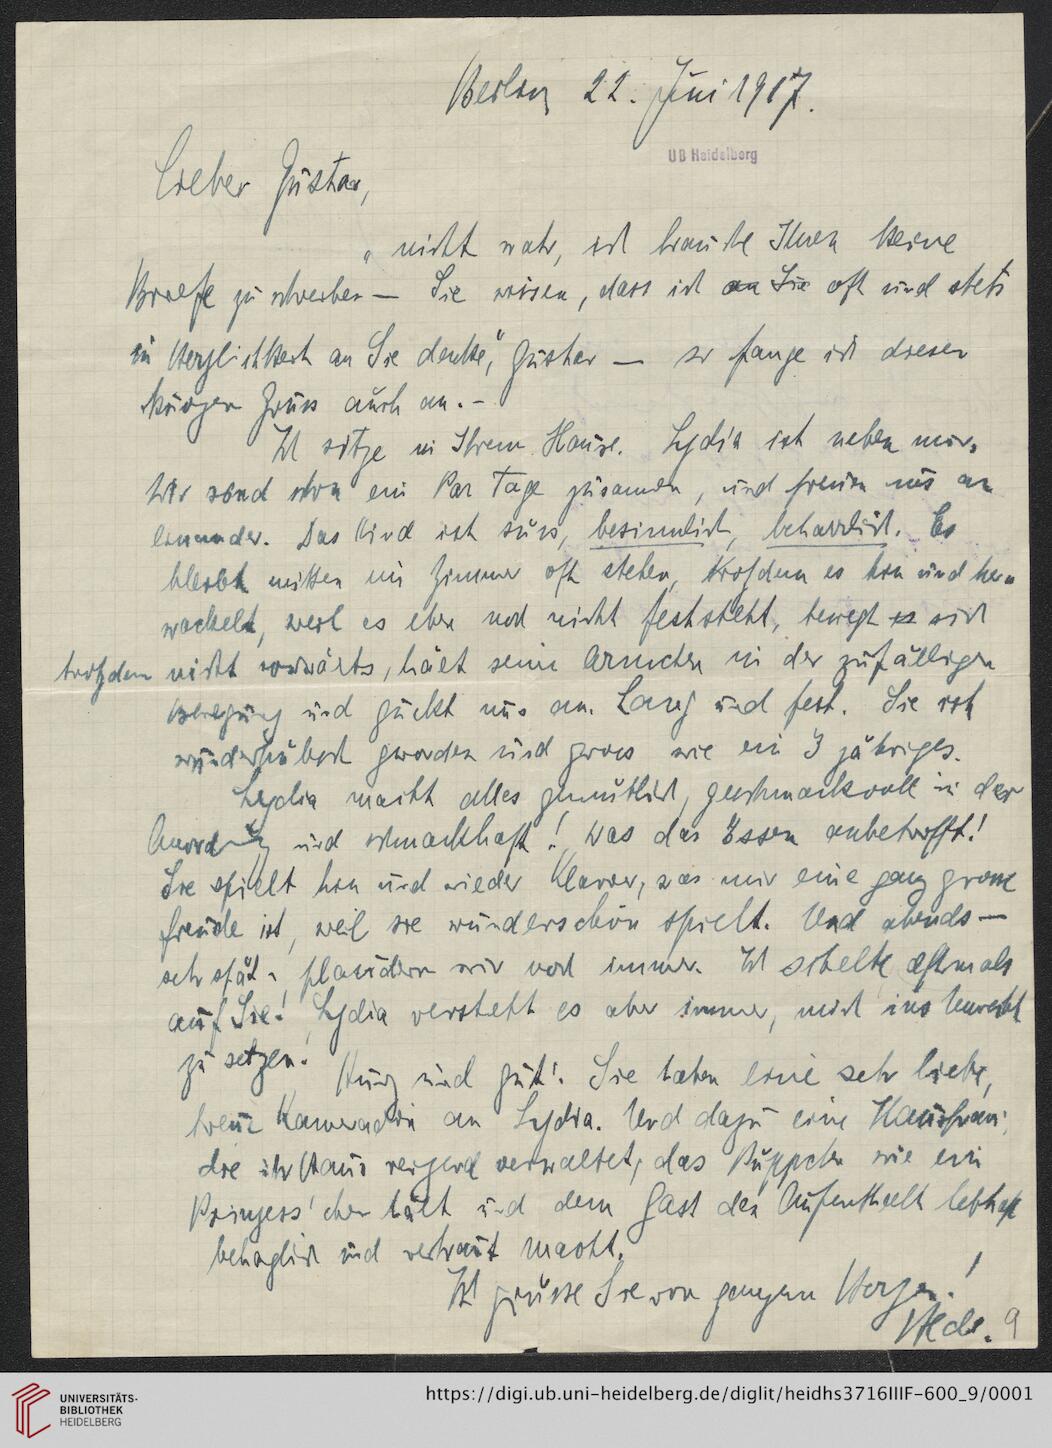 Berlin 22. Juni 1917.
UB Heidelberg
Lieber Gustav,
„nicht wahr, ich brauche Ihnen keine
Briefe zu schreiben — Sie wissen, dass ich an Sie oft und stets
in Herzlichkeit an Sie denke," Gustav — so fange ich diesen
kurzen Gruss auch an. -
Ich sitze in Ihrem Hause. Lydia ist neben mir.
Wir sind schon ein Par Tage zusammen, und freuen uns an
einander. Das Kind ist süss, besinnlich, beharrlich. Es
bleibt mitten im Zimmer oft stehen, trotzdem es hin und her
wackelt, weil es eben noch nicht feststeht, bewegt es sich
trotzdem nicht vorwärts, hält seine Ärmchen in der zufälligen
Bewegung und guckt uns an. Lang und fest. Sie ist
wunderhübsch geworden und gross wie ein 3 jähriges.
Lydia macht alles gemütlich, geschmackvoll in der
Anordnung und schmackhaft! Was das Essen anbetrifft!
Sie spielt hin und wieder Klavier, was mir eine ganz grosse
Freude ist, weil sie wunderschön spielt. Und abends —
sehr spät, plaudern wir noch immer. Ich schelte öftermals
auf Sie! Lydia versteht es aber immer, mich ins Unrecht
zu setzen.
Kurz und gut! Sie haben eine sehr liebe,
treue Kameradin an Lydia. Und dazu eine Hausfrau,
die ihr Haus reizend verwaltet, das Püppchen wie ein
Prinzess'chen hält und dem Gast den Aufenthalt
behaglich und vertraut macht.
Ich grüsse Sie von ganzem Herzen!
9
UNIVERSITÄTS-
BIBLIOTHEK
HEIDELBERG
https://digi.ub.uni-heidelberg.de/diglit/heidhs3716IIIF-600_9/0001